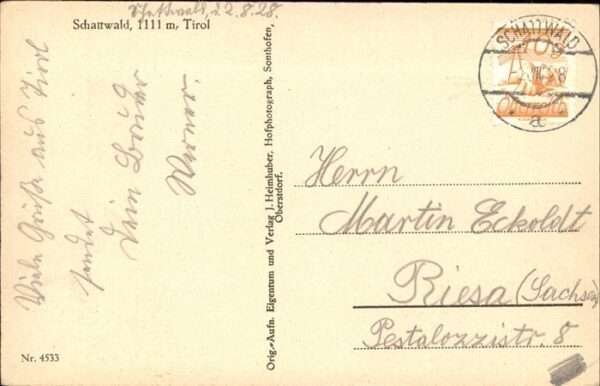 Schattwald, 22.8.28.
Schattwald, 1111 m, Tirol
Viele Grüße aus Tirol
sendet
Dein
Werner.
Nr. 4533
Orig.-Aufn. Eigentum und Verlag J. Heimhuber, Hofphotograph, Sonthofen,
Oberstdorf.
SCHATTWALD
a
Herrn
Martin Eckoldt
Riesa (Sachsen)
Pestalozzistr. 8